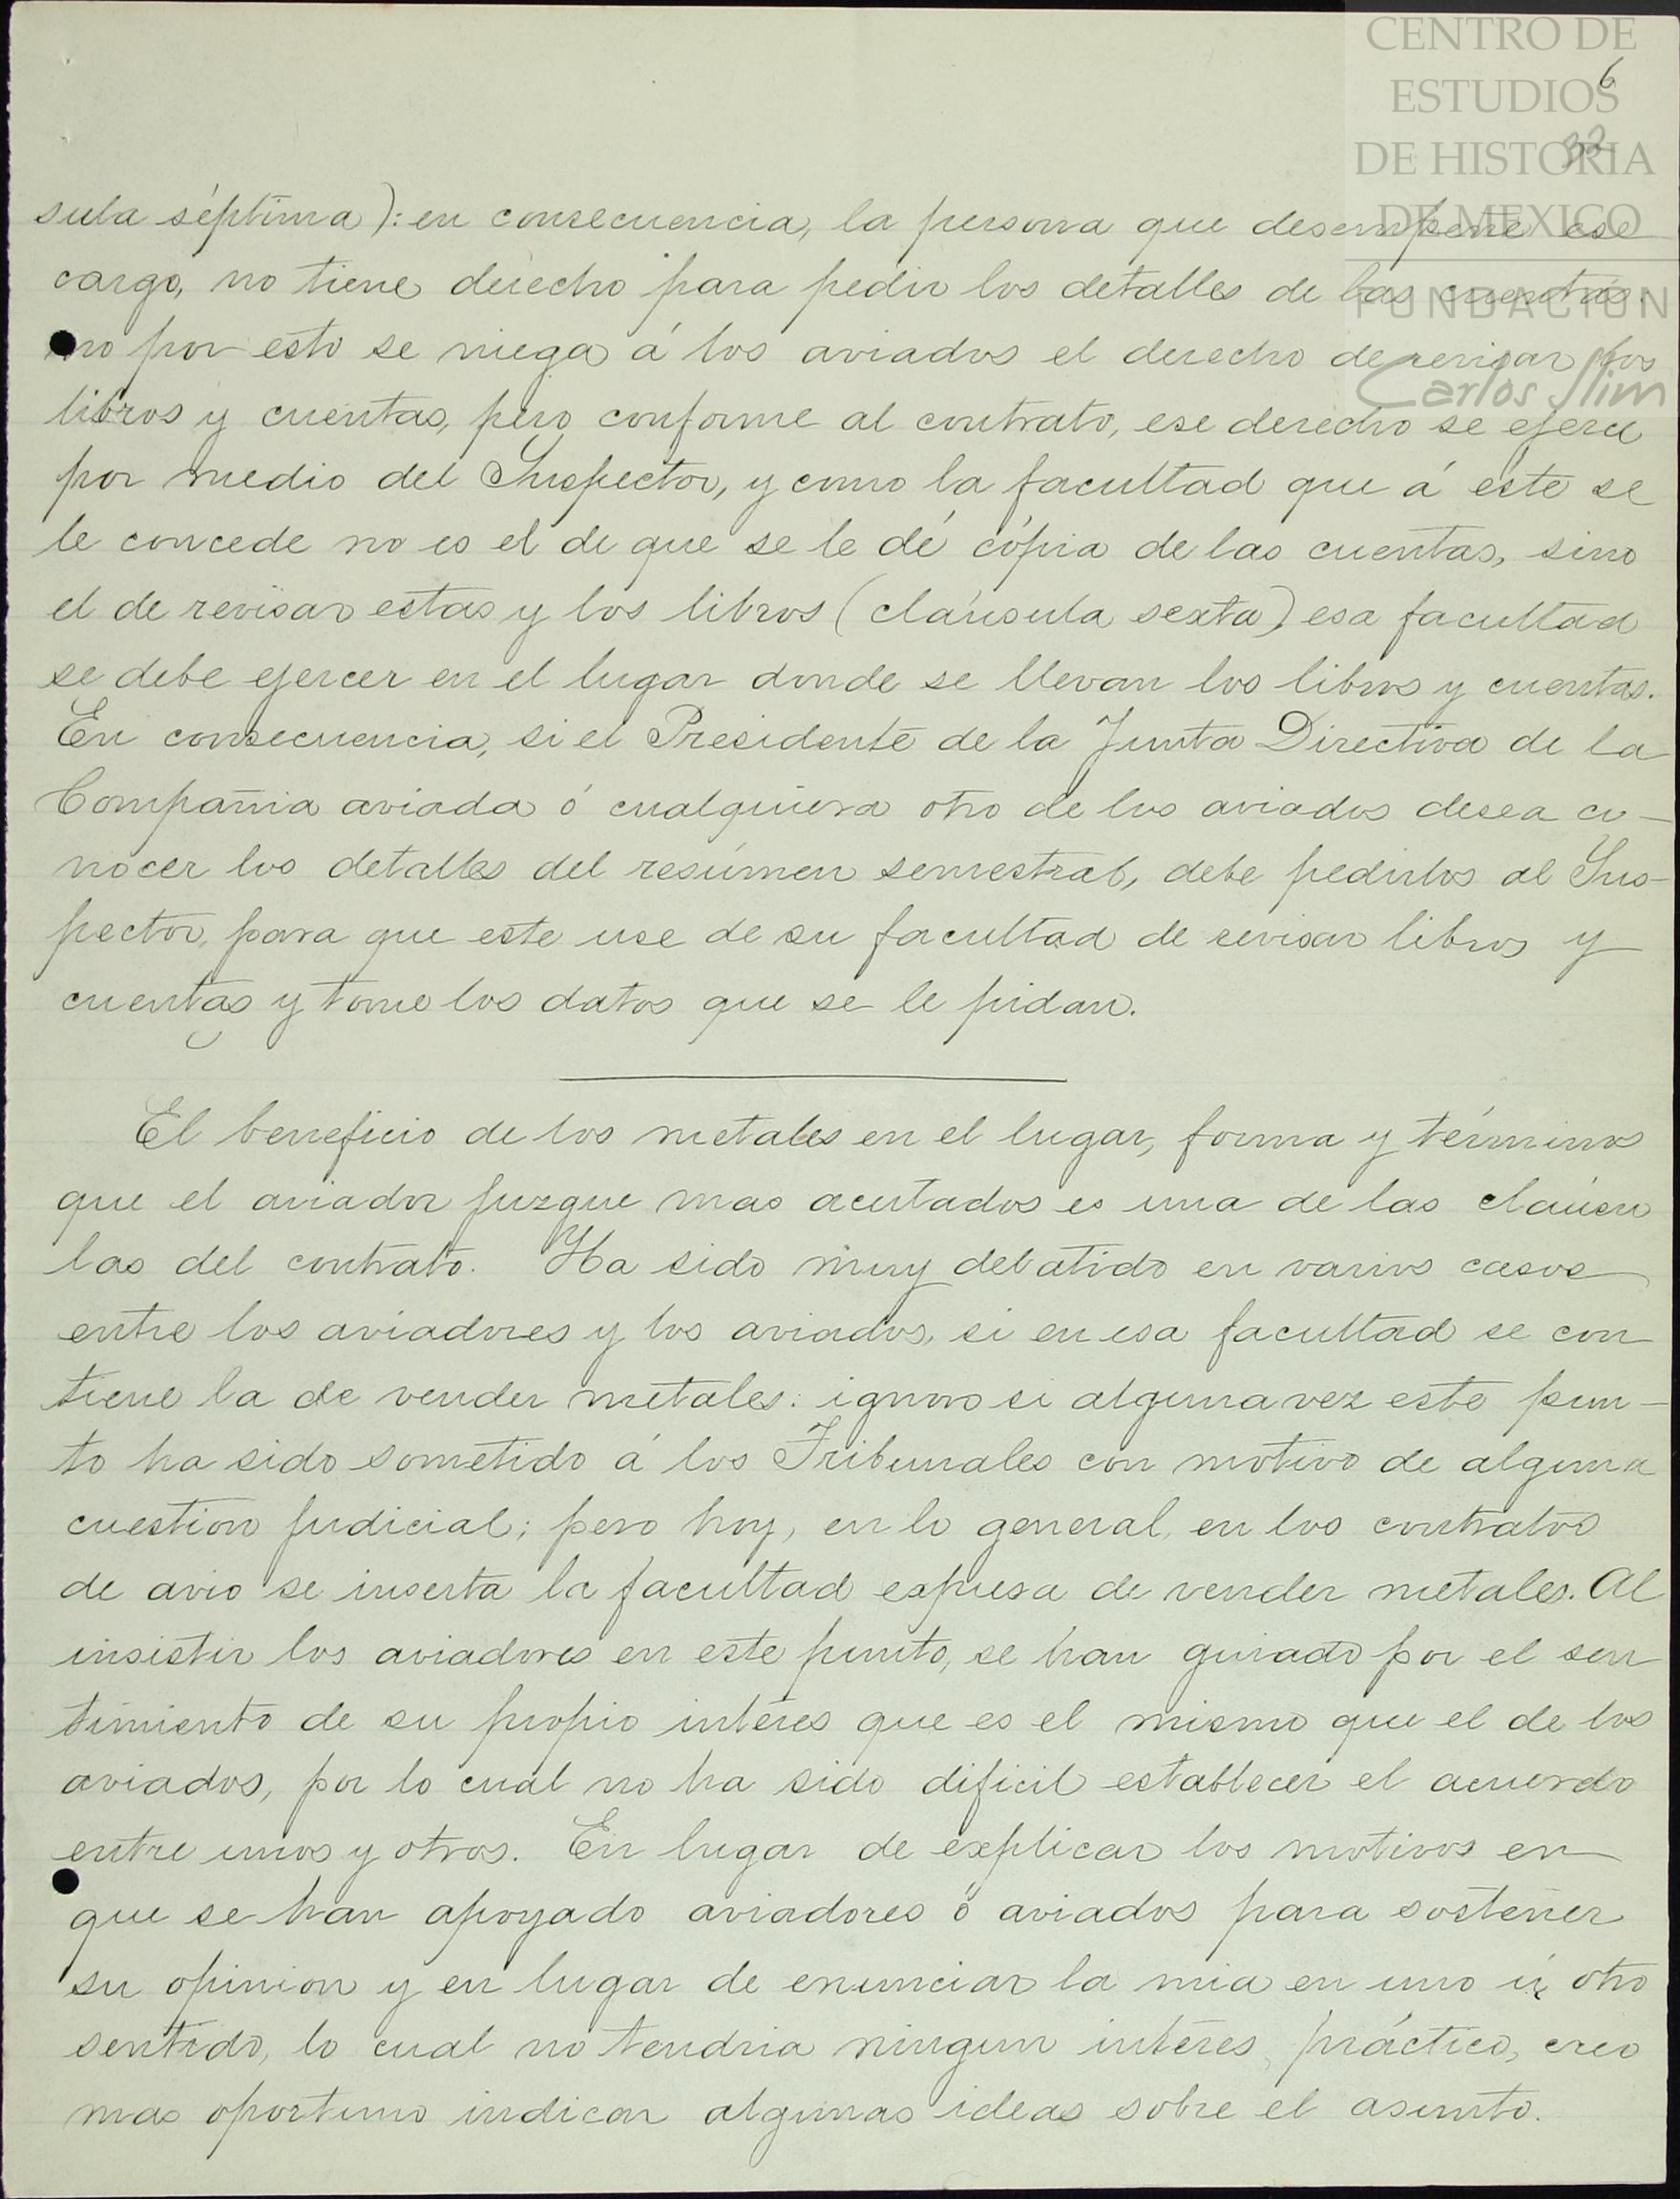 CENTRO DE
ESTUDIOS
DE HISTORIA
DE MEXICO
FUNDACIÓN
Carlos Slim
6
32
sula séptima): en consecuencia, la persona que desempeñe ese
cargo, no tiene derecho para pedir los detalles de las cuentas:
no por esto se niega á los aviados el derecho de revisar los
libros y cuentas, pero conforme al contrato, ese derecho se ejerce
por medio del Inspector, y como la facultad que á éste se
le concede no es el de que se le dé cópia de las cuentas, sino
el de revisar estas y los libros (claúsula sexta) esa facultad
se debe ejercer en el lugar donde se llevan los libros y cuentas.
En consecuencia, si el Presidente de la Junta Directiva de la
Compañia aviada ó cualquiera otro de los aviados desea co-
nocer los detalles del resúmen semestral, debe pedirlos al Ins-
pector, para que este use de su facultad de revisar libros y
cuentas y tome los datos que se le pidan.
El beneficio de los metales en el lugar, forma y términos
que el aviador juzgue mas acertados es una de las claúsu
las del contrato. Ha sido muy debatido en varios casos
entre los aviadores y los aviados, si en esa facultad se con
tiene la de vender metales: ignoro si alguna vez este pun-
to ha sido sometido á los Tribunales con motivo de alguna
cuestion judicial; pero hoy, en lo general, en los contratos
de avio se inserta la facultad expresa de vender metales. Al
insistir los aviadores en este punto, se han guiado por el sen
timiento de su propio interes que es el mismo que el de los
aviados, por lo cual no ha sido dificil establecer el acuerdo
entre unos y otros. En lugar de explicar los motivos en
que se han apoyado aviadores ó aviados para sostener
su opinion y en lugar de enunciar la mia en uno ú otro
sentido, lo cual no tendria ningun interes práctico, creo
mas oportuno indicar algunas ideas sobre el asunto.